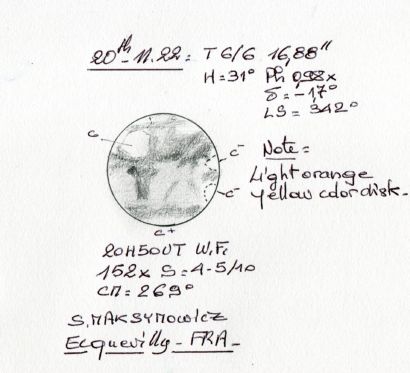 20th-11.22: T 6/6 16,88"
H=31° Ph 0,98x
δ=-1,7°
LS=342°
C
C-
C-
C+
Note=
Light orange
yellow color disk-
20H50UT W, Fi
152x S=4-5/10
CM=269°
S.MAKSYMOWICZ
Ecquevilly-FRA-